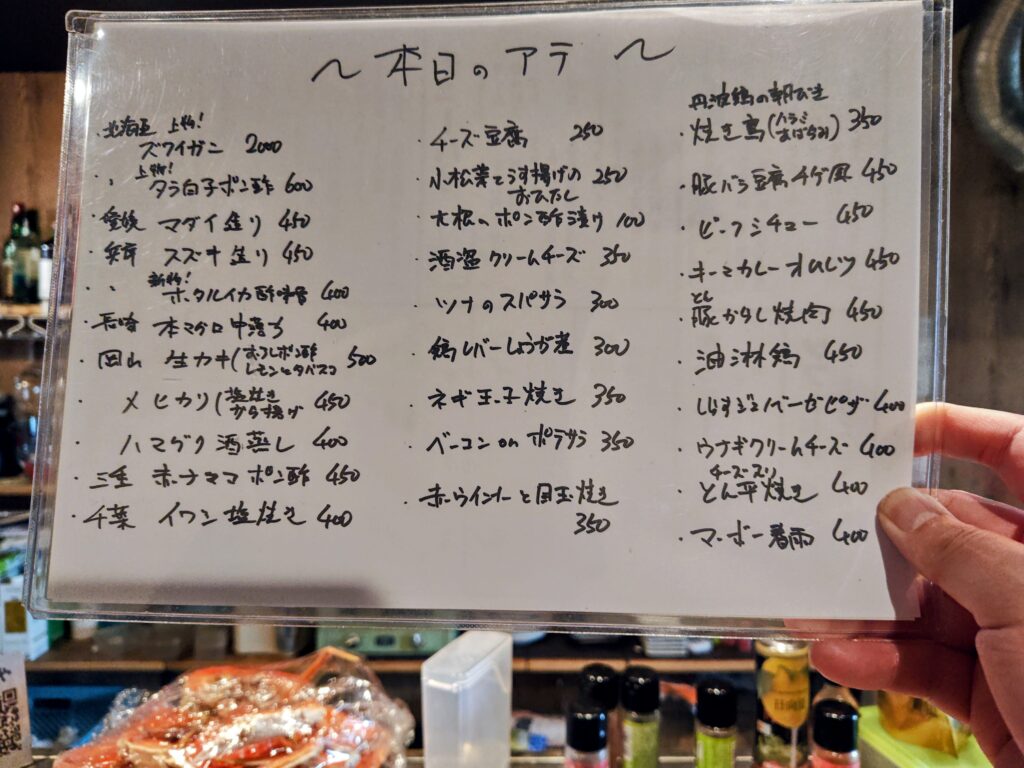 〜 本日のアテ 〜
・北海道 上物!
ズワイガニ 2000
・〃 上物!
タラ白子ポン酢 600
・愛媛 マダイ造り 450
・兵庫 スズキ造り 450
・〃 新物!
ホタルイカ酢味噌 400
・長崎 本マグロ中落ち 400
・岡山 生カキ(もみじポン酢 500
レモンとタバスコ
メヒカリ(塩焼き 450
から揚げ
ハマグリ酒蒸し 400
・三重 赤ナマコポン酢 450
・千葉 イワシ塩焼き 400
・チーズ豆腐 250
・小松菜とうす揚げの 250
おひたし
・大根のポン酢漬け 100
・酒盗クリームチーズ 350
・ツナのスパサラ 300
・鶏レバーしょうが煮 300
・ネギ玉子焼き 350
・ベーコンonポテサラ 350
・赤ウインナーと目玉焼き
350
丹波鶏の朝びき
・焼き鳥(ハラミ 350
・豚バラ豆腐チゲ風 450
・ビーフシチュー 450
・キーマカレーオムレツ 450
とん
・豚からし焼肉 450
・油淋鶏 450
・しらすジェノベーゼピザ 400
・ウナギクリームチーズ 400
チーズ入り
・とん平焼き 400
・マーボー春雨 400